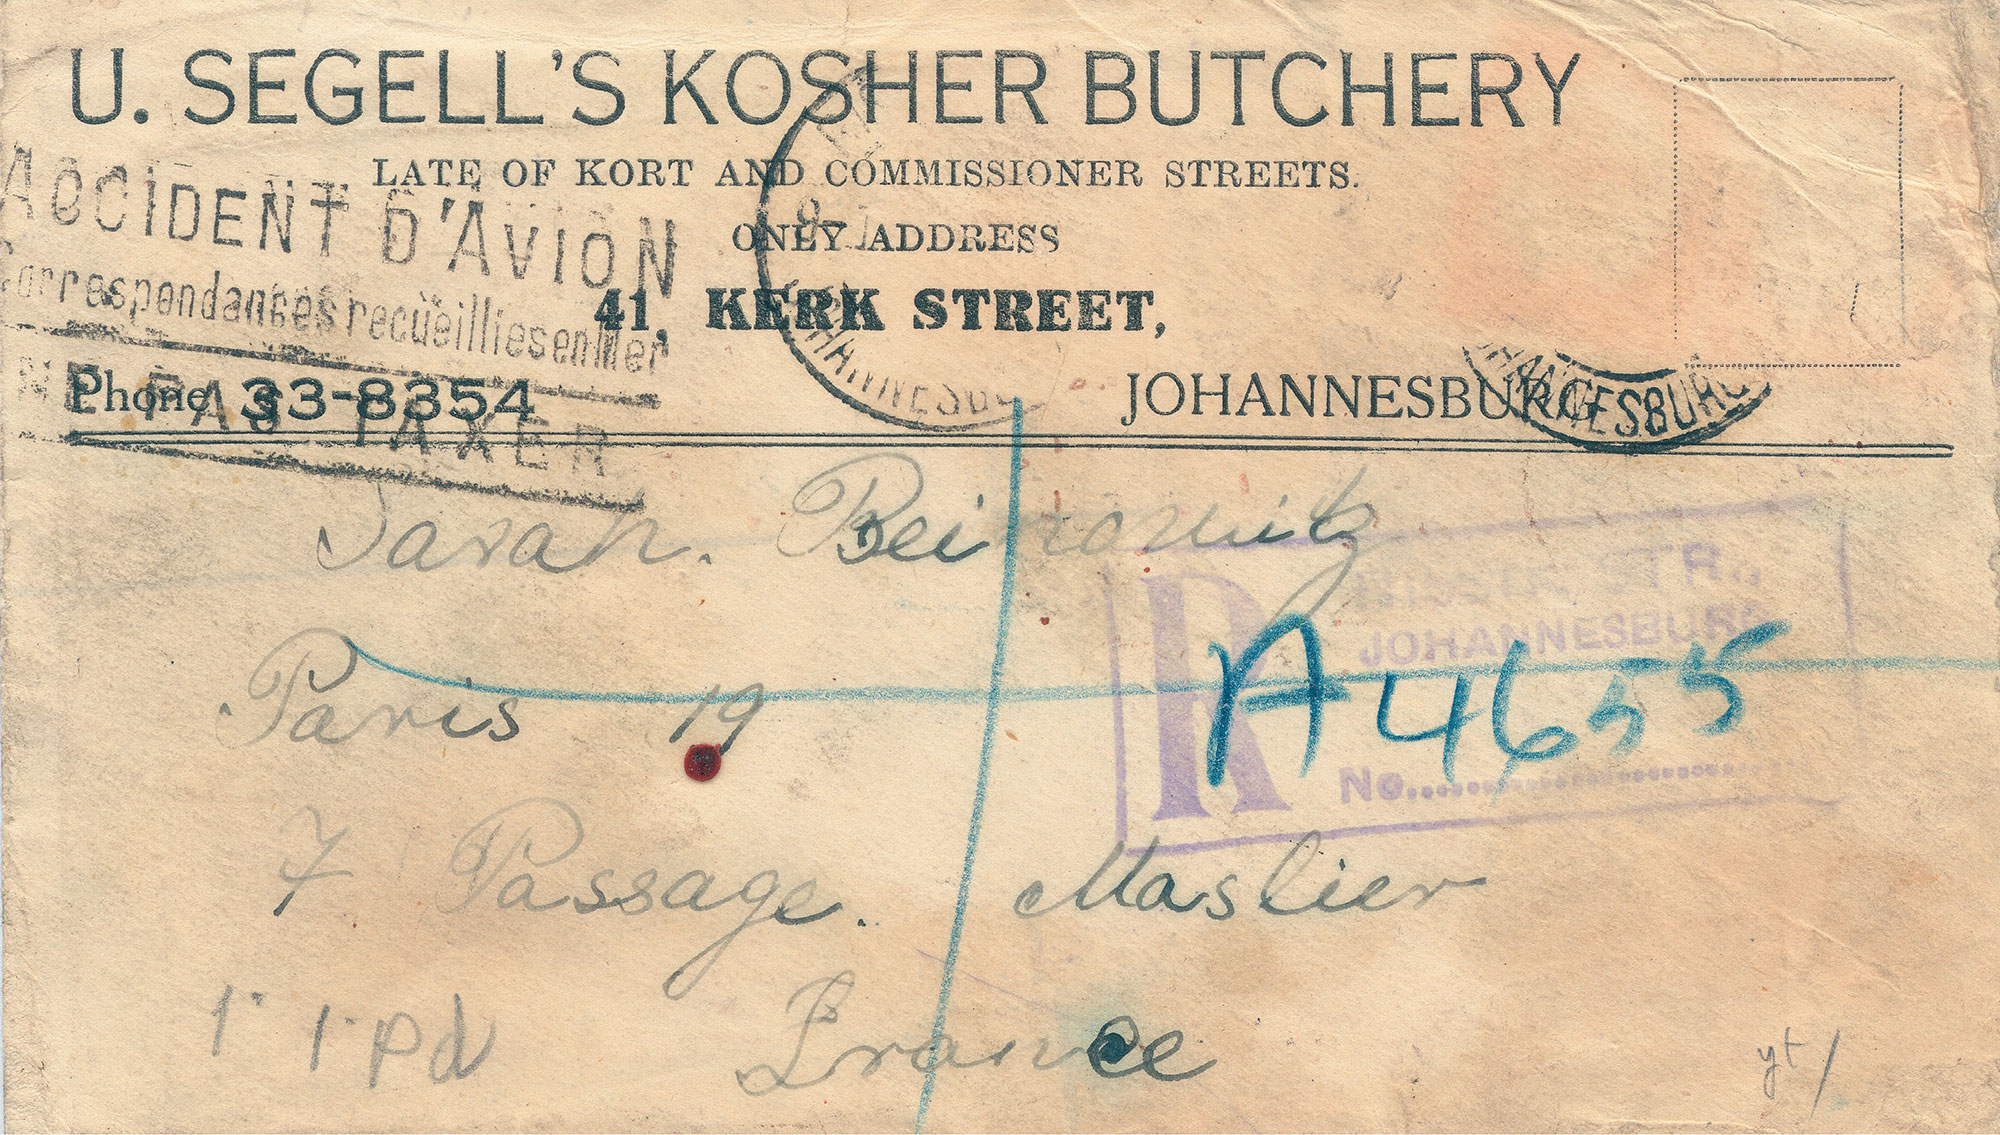 U. SEGELL'S KOSHER BUTCHERY
LATE OF KORT AND COMMISSIONER STREETS.
ONLY ADDRESS
41, KERK STREET,
Phone 33-8354
JOHANNESBURG
ACCIDENT D'AVION
Correspondances recueillies en Mer
NE PAS TAXER
JOHANNESBURG
JOHANNESBURG
Sarah. Beinowitz
R
STR.,
JOHANNESBURG
No. A4655
Paris 19
7 Passage. Maslier
France
pd